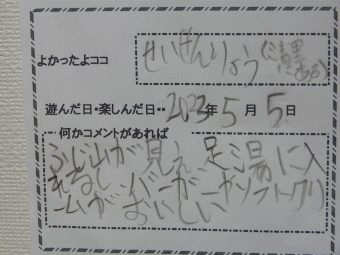 よかったよココ
せいげんりょう
遊んだ日・楽しんだ日・・ 2023年 5月 5日
何かコメントがあれば
ふじ山が見え足湯に入
れるし
ハンバーガーやソフトクリ
ームがおいしい